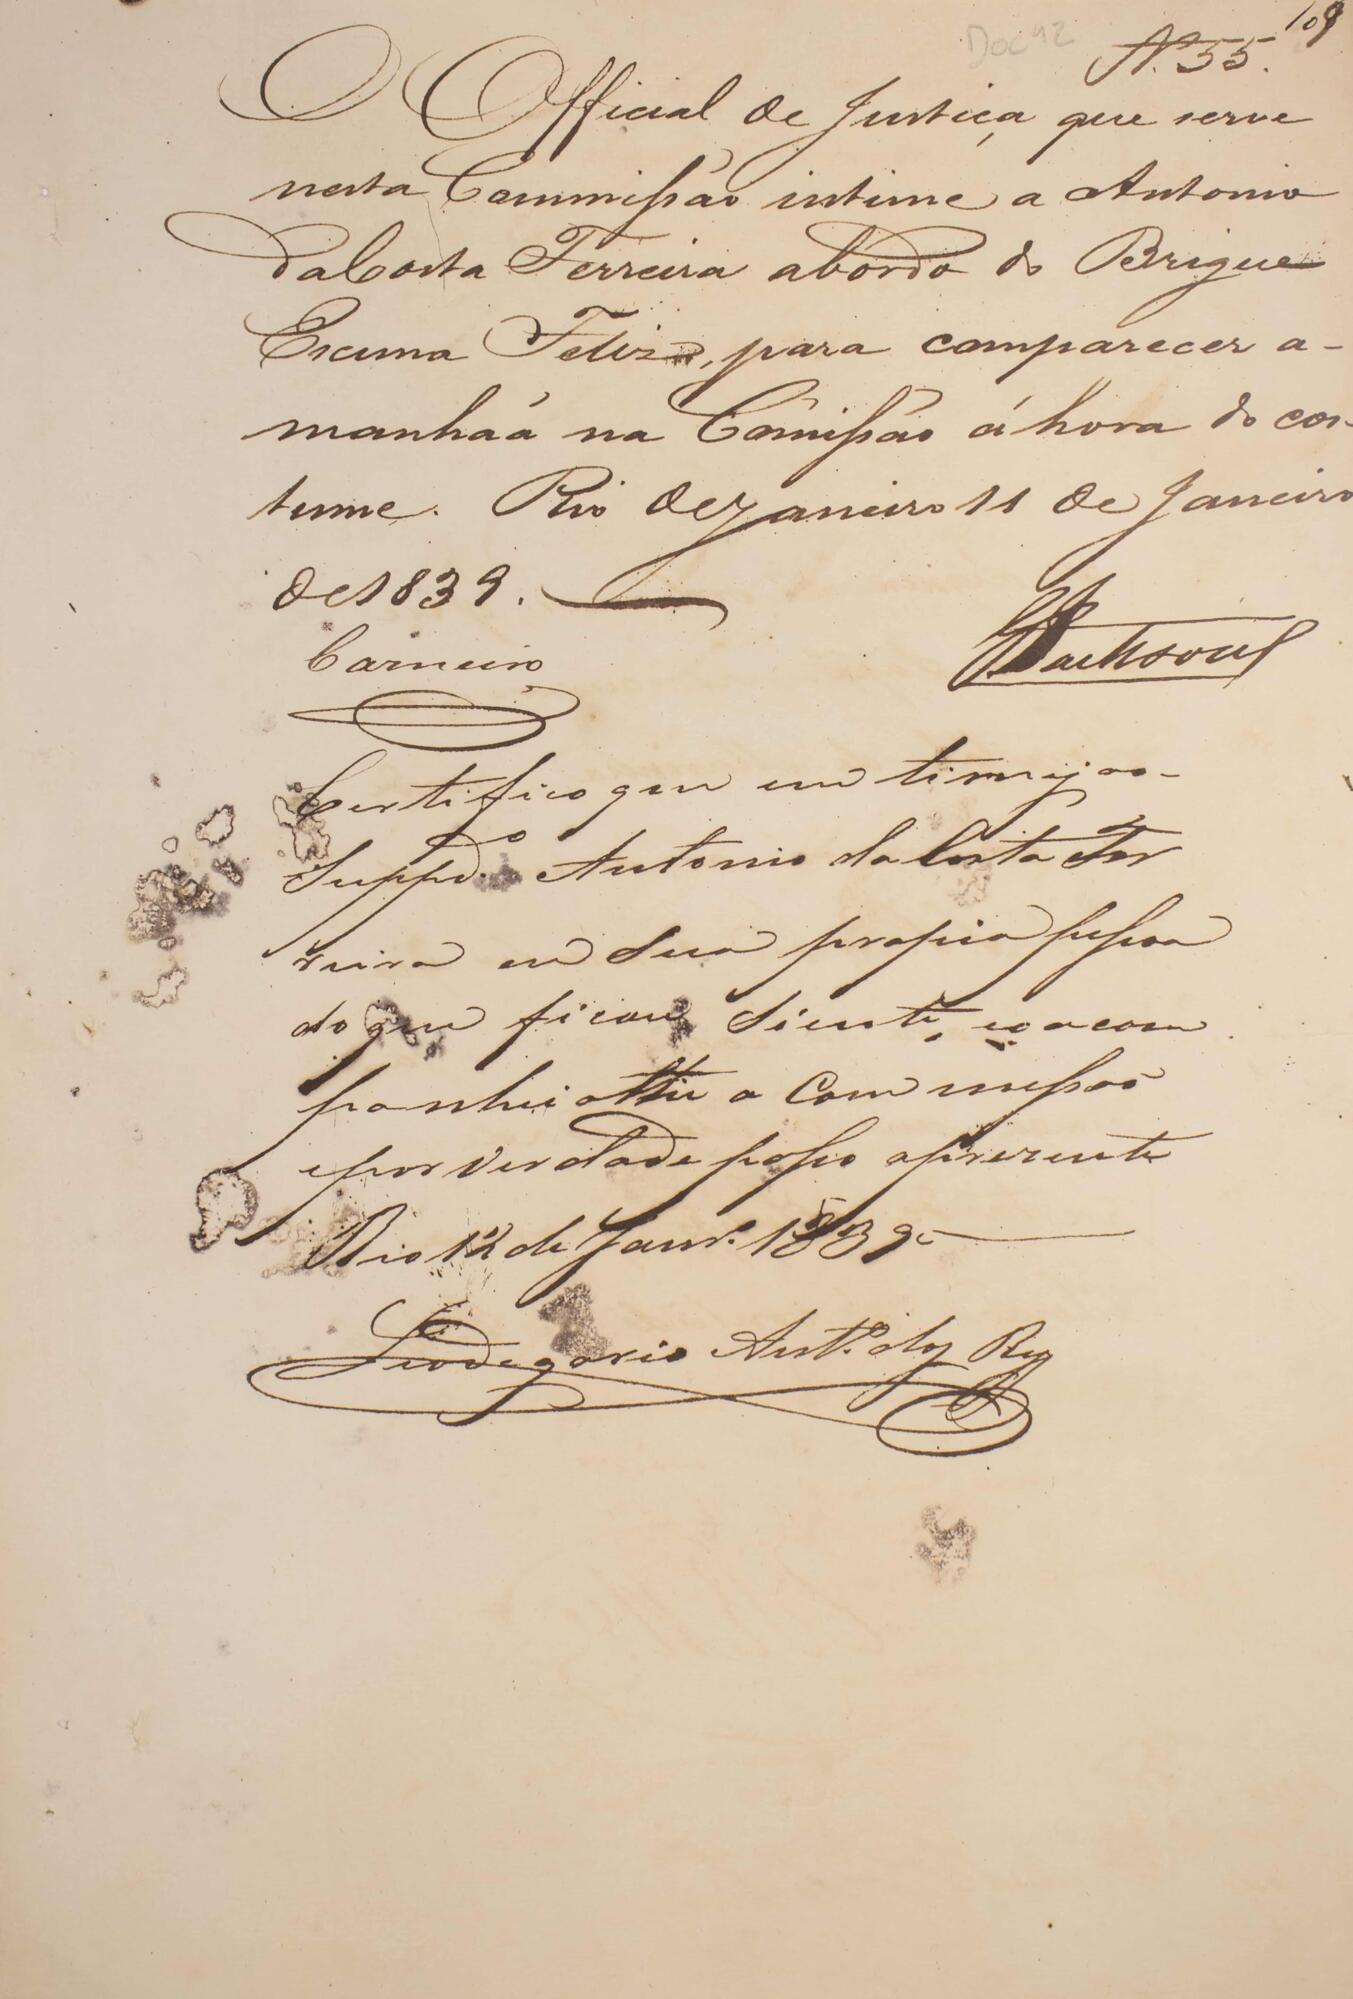 109
Doc 42
Nº 55.
O Official de Justiça que serve
nesta Commissão intime a Antonio
da Costa Ferreira abordo do Brigue
Escuna Feliz, para comparecer a-
manhãa na Cõmissão á hora do cos-
tume. Rio de Janeiro 11 de Janeiro
de 1839.
Carneiro
Certifico que em timejao
Suppdo. Antonio da Costa Fer
reira em sua propria pessoa
do que ficou siente, e o acom
panhei athe a Commessão
e por verdade passo a prezente
Rio 12 de Janro. 1839
Leodegario Anto. dos Reys